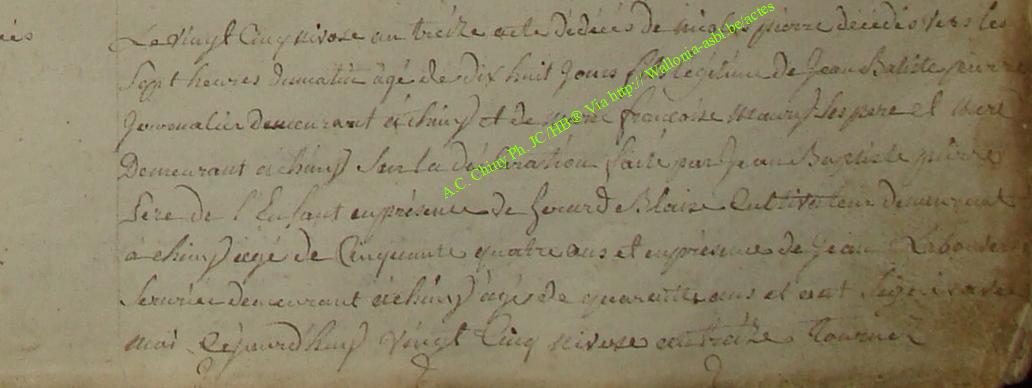 ès
Le vingt Cinq nivose an treize acte dédécés de nicolas pierre décédés vers les
Sept heures Dumatin âgé de dix huit Jours fils légitime de Jean Batiste pierre
Journalier demeurant à chiny et de marie françoise maury Ses pere et mere
Demeurant a chiny Sur la déclaration faite par Jean Baptiste pierre
Pere de l'Enfant en présence de Gerard Blaise Cultivateur demeurant
a chiny agé de Cinquante quatre ans et en présence de Jean
demeurant à chiny âgé de quarante ans et ont Signé avec
moi Cejourd'huy vingt Cinq nivose an treize
A.C. Chiny Ph. JC /HB® Via http:// Wallonia-asbl.be/actes